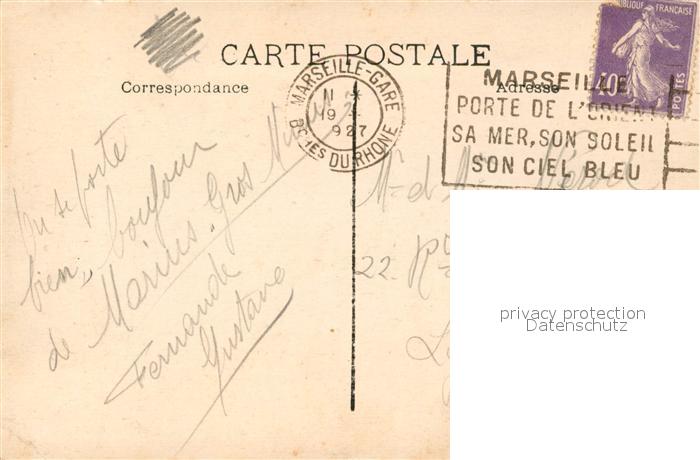 CARTE POSTALE
Correspondance
Adresse
RÉPUBLIQUE FRANÇAISE
40c
POSTES
MARSEILLE-GARE
11 *
19 -
1927
BCHES DU RHONE
MARSEILLE
PORTE DE L'ORIENT
SA MER, SON SOLEIL
SON CIEL BLEU
On se porte
bien, bonjour
de Marius. Gros
Fernande
Gustave
Mr et
22
privacy protection
Datenschutz